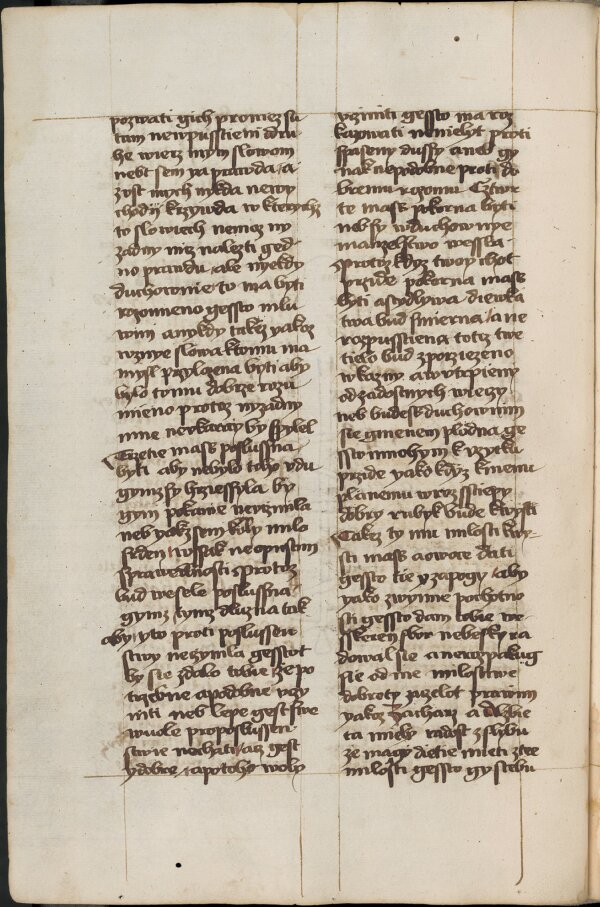 pozwati gich proniez su
tam newpusstieni dru
he wierz mym slowom
nebt sem ya prawda a
zvst mych nikda newy
chodij krzywda w kterychz
to slowiech nemoz ny
zadny niz nalezti ged
no prawdu ale niekdy
duchownie to ma byti
rozomneno gessto mlu
wim a nykdy takez yakoz
wznye slowa ktomu ma
mysl przylozena byti aby
bylo tomu dobrze rozu
mieno protoz nyzadny
mne newkaray by ssylel
Trzetie mass poslussna
byti aby nebylo toho vdu
gymz sy hrziessyla by
gym pokanie nevzinila
neb yakz sem koly milo
srden wssak neopustim
sprawedlnosti Protoz
bud wesele poslussna
gymz tymz dluzna tak
aby yto proti poslussen
stwy nevzinila gesstot
by sie zdalo tobie ze po
trzebne a podobne vczy
niti neb lepe gest swe
wuole pro poslussen
stwie nechati az gest
y dobre a potoho woly
vziniti gessto ma roz
kazowati nenielyt proti
spaseny dussy aneb gy
nak nepodobne proti do
bremu rozomu Cztwr
te mass pokorna byti
neb sy w duchownye
manzelstwo wessla
Protoz kdyz twoy chot
przide pokorna mass
byti a stydlywa diewka
twa bud smierna a ne
rozpusstiena totiz twe
tielo bud zporziezeno
w kazny a wvtrpieny
od zadostnych wieczy
neb budess duchownim
sie gmenem plodna ge
ssto mnohym k vzytku
przide yako kdyz k niemu
planemu wrozsstiepy
dobry rubyk bude kwysti
Takez ty mu milosti kwy
sti mass a owoce dati
gessto tie y zapogy aby
yako zwynne pochotno
sti gessto dam tobie we
ssken sbor nebesky ra
dowal sie a nerozpakug
sie od me milostiwe
dobroty za czelot prawim
yakoz Zacharz a Alzbie
ta miely radost z slybu
ze magy dietie mieti z tee
milosti gessto gy stebu